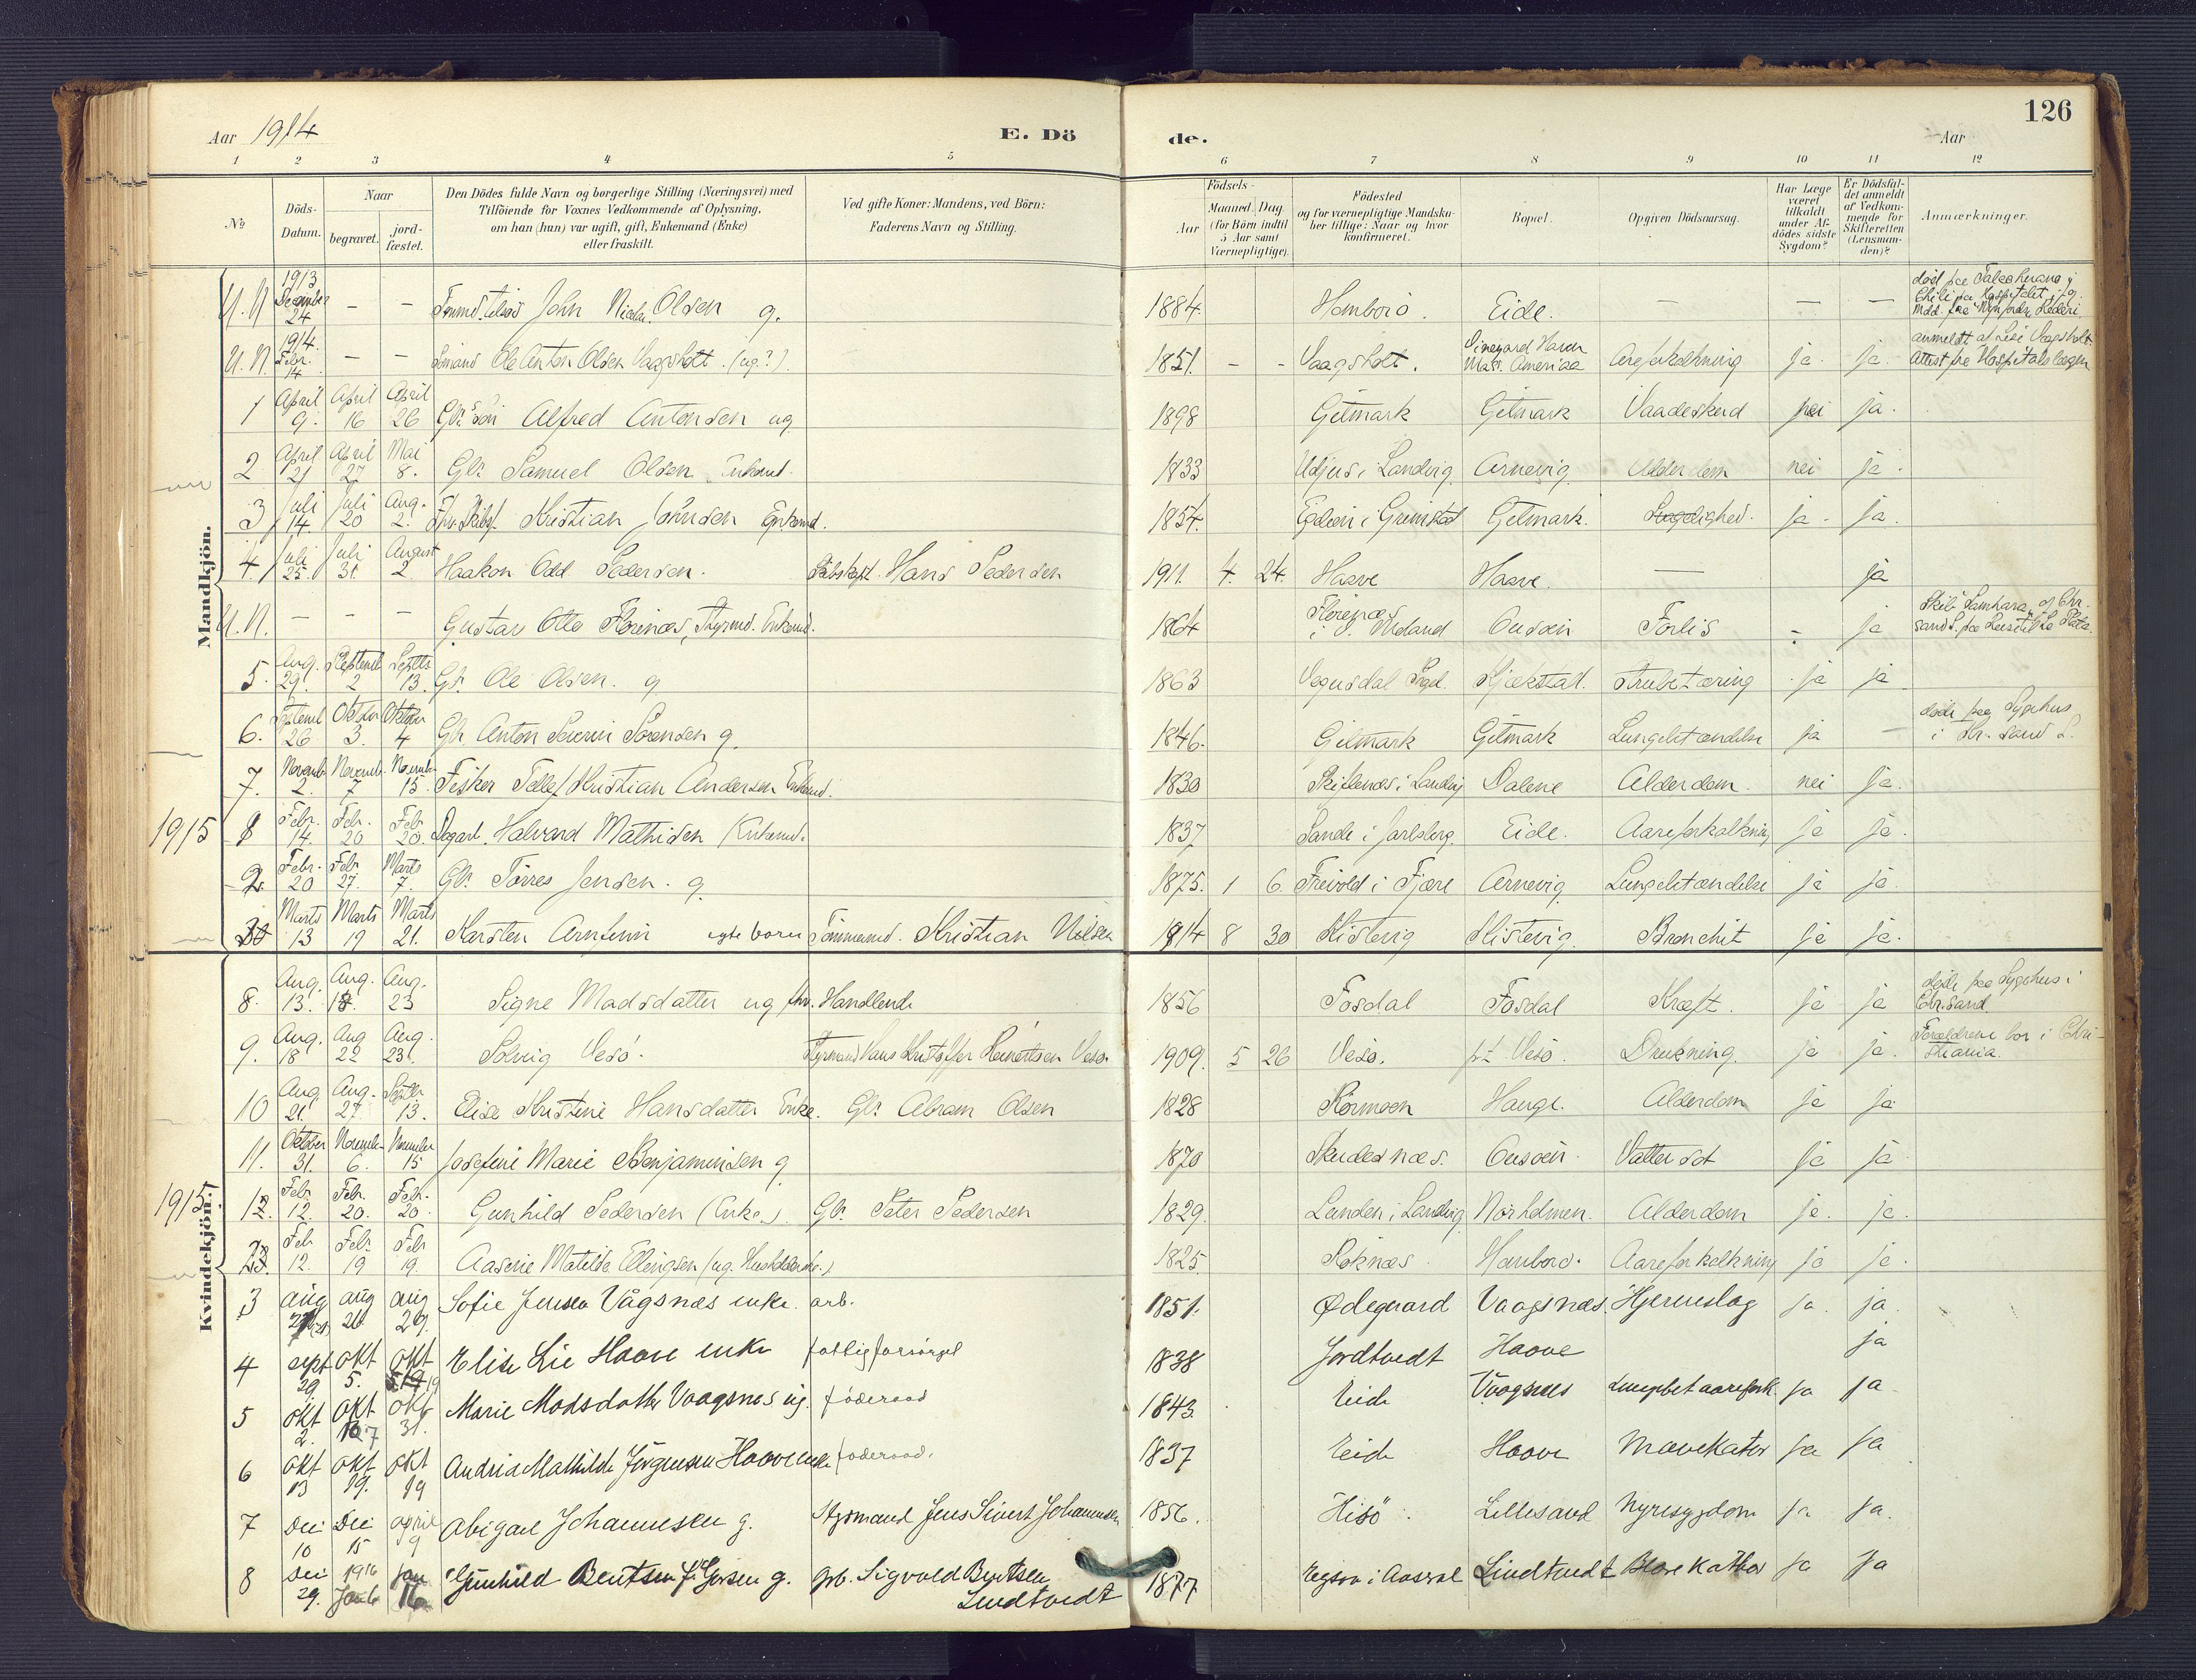 126
Aar 1914
E. Dö
de.
Aar
1 2 3 4 5 6 7 8 9 10 11 12
No
Döds-
Datum.
Naar
begravet.
jord-
fæstet.
Den Dödes fulde Navn og borgerlige Stilling (Næringsvei) med
Tilföiende for Voxnes Vedkommende af Oplysning,
om han (hun) var ugift, gift, Enkemand (Enke)
eller fraskilt.
Ved gifte Koner: Mandens, ved Börn:
Faderens Navn og Stilling.
Födsels-
Aar
Maaned. Dag
(for Börn indtil
5 Aar samt
Værnepligtige).
Födested
og for værnepligtige Mandska-
ber tillige: Naar og hvor
konfirmeret.
Bopæl.
Opgiven Dödsaarsag.
Har Læge
været
tilkaldt
under Af-
dödes sidste
Sygdom?
Er Dödsfal-
det anmeldt
af Vedkom-
mende for
Skifteretten
(Lensman-
den)?
Anmærkninger.
Mandkjön.
U.N. 1913 December 24 – – John Nicolai Olsen g. 1884. Homborö. Eide. – – – død paa Talcahuano i Chili paa Hospitalet
U.N. 1914. Febr. 14 – – Ole Anton Olsen Vaagsholt. (ug?). 1851. – – Vaagsholt. Vineyard Haven Mass. Amerika Areforkalkning ja ja anmeldt af Vaagsholt Attest fra Hospitalslægen
1 April 9. April 16 April 26 Gbr. Søn Alfred Antonsen ug 1898 Gitmark Gitmark Vaadeskud nei ja.
2 April 21 April 27 Mai 8. Gbr. Samuel Olsen Enkemd. 1833 Udjus i Landvig Arnevig Alderdom nei ja.
3 Juli 14. Juli 20 Aug. 2. Kristian Johnsen Enkemd. 1854. Grimstad Gitmark. ja. ja.
4. Juli 25. Juli 31. August 2. Haakon Odd Pedersen. Skibskapt. Hans Pedersen 1911. 4. 24. Haave Haave. – ja
U.N. – – – Gustav Otto Florenæs, Styrmd. Enkemd. 1864 Florenæs i Ø. Moland Ousøen Forlis – ja Skib
5. Aug. 29. Septemb 2 Septbr 13. Gbr. Ole Olsen. g 1863 Vegusdal Kjækstad. Strubetæring ja ja
6. Septemb 26 Oktober 3. Oktober 4 Gbr. Anton Severin Sørensen g. 1846. Gitmark Gitmark Lungebetændelse ja – døde paa Sygehus i Chr.sand S.
7. Novemb. 2. Novemb. 7 Novemb. 15. Fisker Tellef Kristian Andersen Enkemd. 1830 Skiftenes i Landvig Dalene Alderdom. nei ja.
1915 1 Febr. 14. Feb. 20 Feb 20. Dagarb. Halvard Mathisen (Enkemd. 1837 Sande i Jarlsberg. Eide. Aareforkalkning ja ja.
2. Febr. 20 Feb. 27. Marts 7. Gbr. Tórres Jensen. g. 1875. 1 6. Freivold i Fjære Arnevig Lungebetændelse ja ja.
3 Marts 13 Marts 19 Marts 21. Karsten Arnfinn egte born Tömmermd. Kristian Nilsen 1914 8 30 Kistevig Kistevig. Bronchit ja ja.
Kvindekjön.
8. Aug. 13. Aug. 18. Aug. 23 Signe Madsdatter ug fhv. Handlende 1856 Fosdal Fosdal Kræft. ja ja døde paa Sygehus i Chr.sand
9. Aug. 18 Aug 22 Aug. 23. Solvig Vesö. Styrmand Hans Kristoffer Vesö 1909. 5 26 Vesö. Vesö. Drukning. ja ja. Forældrene bor i Christiania.
10 Aug 21. Aug. 27. Septbr 13. Elise Kristine Hansdatter Enke. Gbr. Abram Olsen 1828 Körmoen Hauge. Alderdom ja ja
11. Oktober 31. Novemb. 6. November 15 Josefine Marie Benjaminsen g 1870 Skudesnæs. Ousøen. Vattersot ja ja
1915. 1 Feb 12. Feb. 20. Feb. 20. Gunhild Pedersen (Enke.) Gbr. Peter Pedersen 1829. Lunden i Landvig Norholmen. Alderdom ja. ja.
2 Feb 12. Feb. 19 Feb 19. Aasine Matilde Ellingsen (ug. ) 1825. Röknæs Homborö. Aareforkalkning ja ja.
3 aug aug 26 aug 29. Sofie Jensen Vågsnæs enke. arb. 1851. Ødegaard Vaagsnæs. Hjerneslag ja. ja.
4 sept 29. okt 5. okt 19 Elise Lie Haave enke fattigforsörget 1838 Jordtvedt Haave ja
5 okt 2. okt 7 okt 31. Marie Madsdatter Vaagsnes ug. föderaad 1843. Eide Vaagsnes ja ja
6 okt 13 okt 19. okt 19 Andrea Mathilde Jörgensen Haave enke föderaad. 1837 Eide Haave Mavekatar ja ja
7 Des 10 Des 15 april 9 Abigael Johannesen g. Styrmand Jens Sivert Johannesen 1856. Hisö. Lillesand Nyresygdom ja ja.
8 Des 29. 1916 Jan 6 jan 16 Gunhild Bentsen g. Gbr. Sigvald Bentsen Lindtvedt 1877 i Aaseral Lindtvedt ja ja